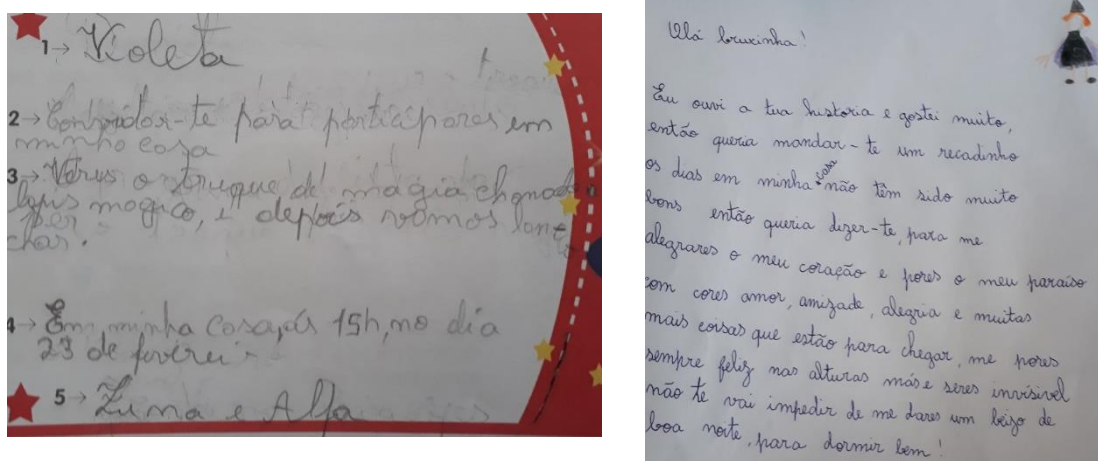 1→ Violeta
2→ Convidar-te para participares em
minha casa
3→ Veres o truque de magia chamado
lapis magico, e depois vamos lan
char.
4→ Em minha casa, ás 15h, no dia
23 de
5→ Luna e
Olá bruxinha!
Eu ouvi a tua historia e gostei muito,
então queria mandar-te um recadinho
os dias em minha casa não têm sido muito
bons então queria dizer-te, para me
alegrares o meu coração e pores o meu paraíso
com cores amor, amizade, alegria e muitas
mais coisas que estão para chegar, me pores
sempre feliz nas alturas más e seres invisivel
não te vai impedir de me dares um beijo de
boa noite, para dormir bem!